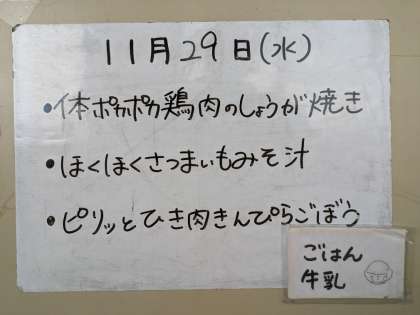 11月29日(水)
•体ポカポカ鶏肉のしょうが焼き
•ほくほくさつまいもみそ汁
•ピリッとひき肉きんぴらごぼう
ごはん
牛乳